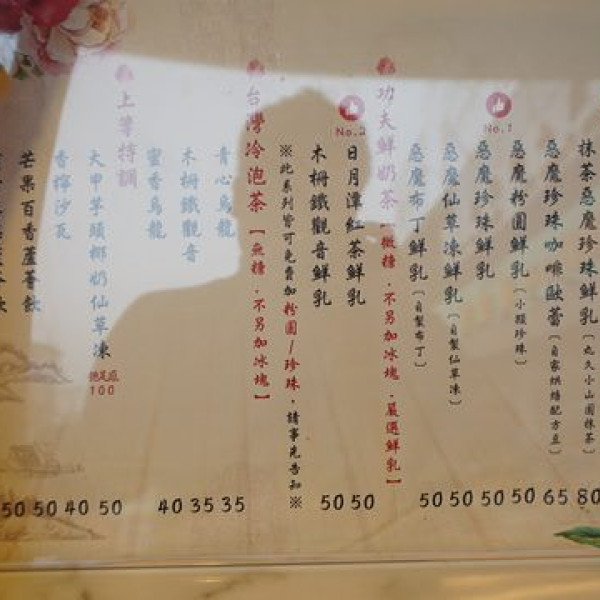 抹茶惡魔珍珠鮮乳(丸久小山園抹茶) 80
惡魔珍珠咖啡歐蕾(自家烘焙配方豆) 65
惡魔粉圓鮮乳(小顆珍珠) 50
No.1
惡魔珍珠鮮乳 50
惡魔仙草凍鮮乳(自製仙草凍) 50
惡魔布丁鮮乳(自製布丁) 50
功夫鮮奶茶【微糖.不另加冰塊.嚴選鮮乳】
No.2
日月潭紅茶鮮乳 50
木柵鐵觀音鮮乳 50
※此系列皆可免費加粉圓/珍珠,請事先告知※
台灣冷泡茶【無糖.不另加冰塊】
青心烏龍 35
木柵鐵觀音 35
蜜香烏龍 40
上等特調
大甲芋頭椰奶仙草凍 50
100
香檸沙瓦 40
芒果百香蘆薈飲 50
50